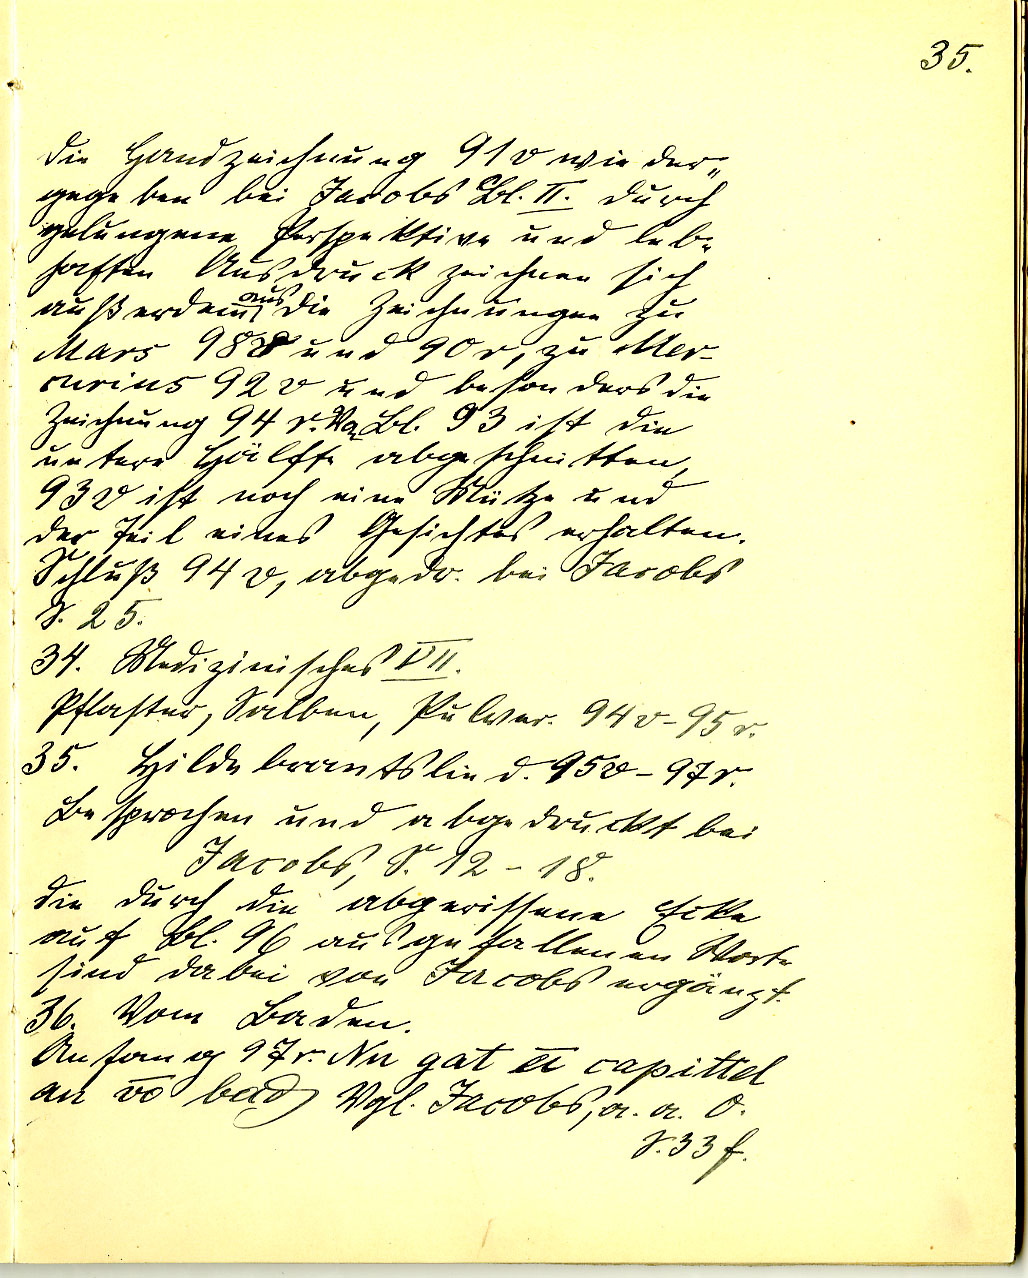 35.
die Handzeichnung 91v wieder„
gegeben bei Jacobs Bl. II. durch
gelungene Perspektive und leb„
haften Ausdruck zeichnen sich
außerdem aus die Zeichnungen zu
Mars 98v und 90r, zu Mer-
curius 92v und besonders die
Zeichnung 94r. Bl. 93 ist die
untere Hälfte abgeschnitten,
93v ist noch eine Mütze und
der Teil eines Gesichtes erhalten.
Schluß 94v, abgedr. bei Jacobs
S. 25.
34. Medizinisches VII.
Pflaster, Salben, Pulver. 94v-95r.
35. Hildebrantslied. 95v-97r.
Besprochen und abgedruckt bei
Jacobs, S. 12-18.
die durch die abgerissene Ecke
auf Bl. 96 ausgefallenen Worte
sind dabei von Jacobs ergänzt.
36. Vom Baden.
Anfang 97r. Nu gat eī capittel
an vō bad Vgl. Jacobs, a. a. O.
S. 33 f.